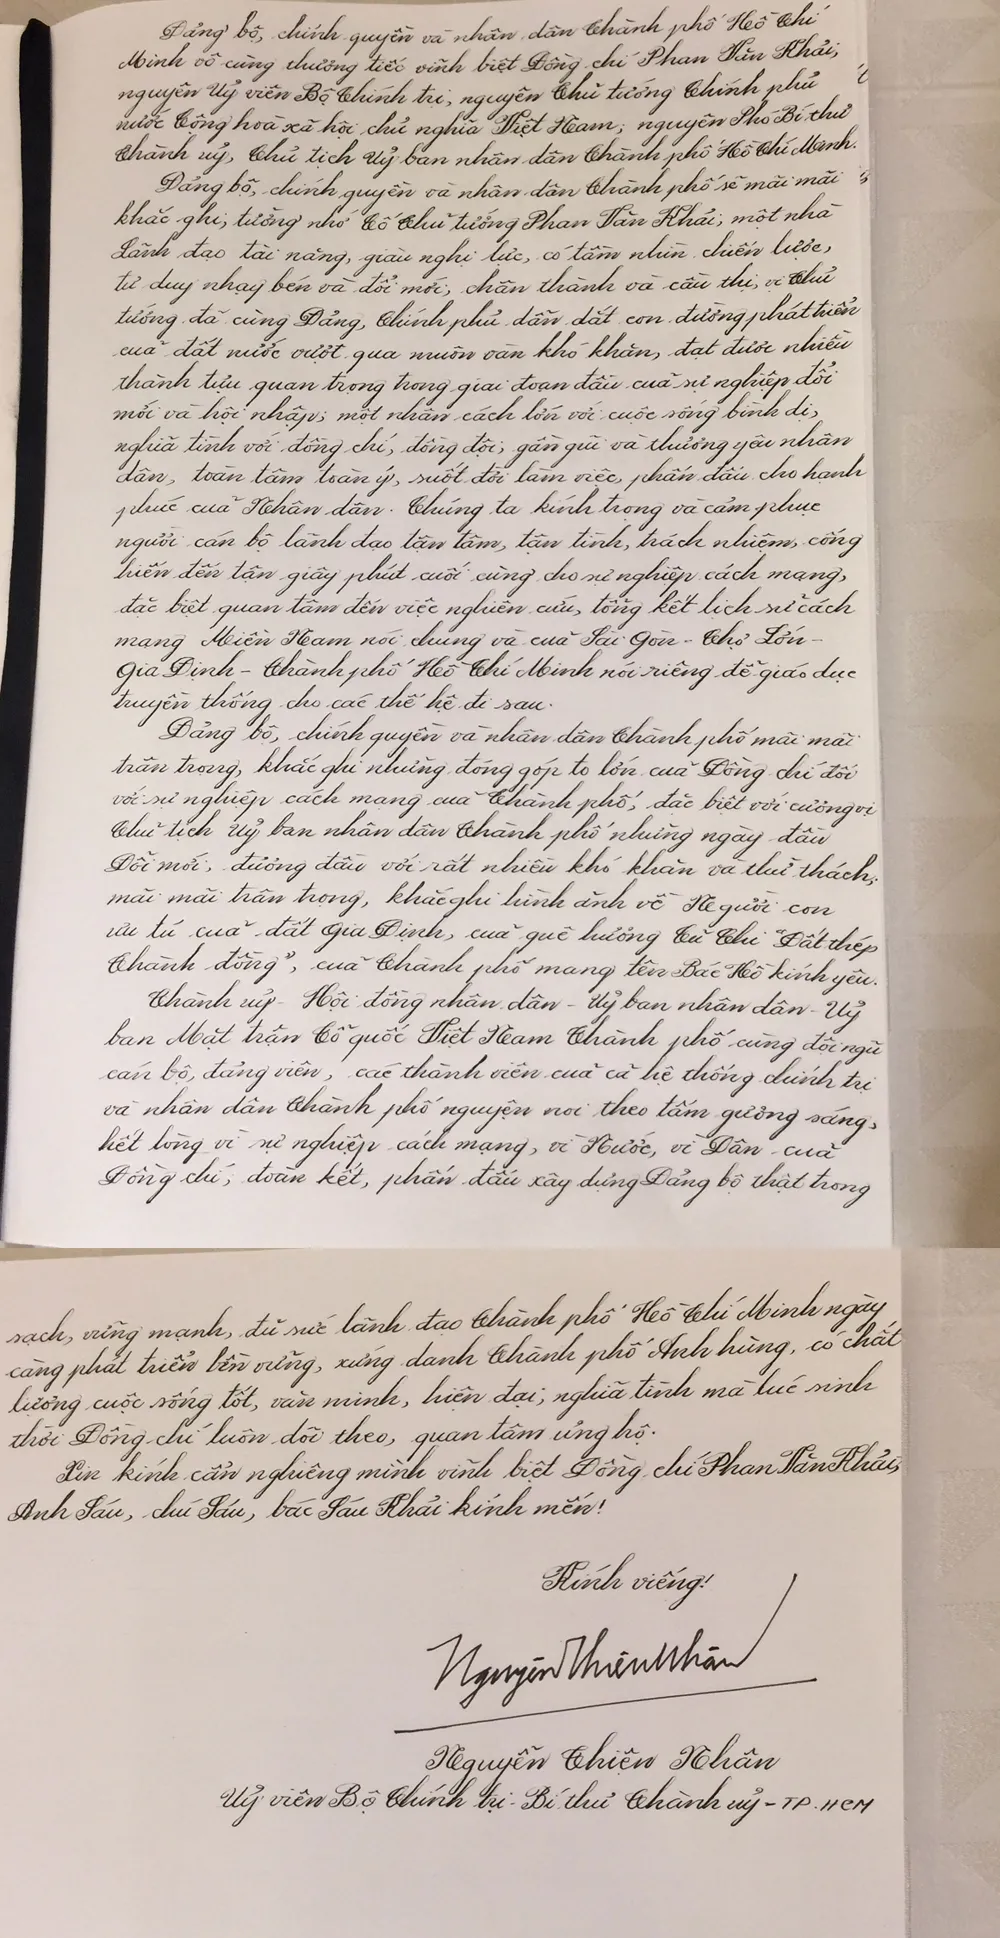 Đảng bộ, chính quyền và nhân dân Thành phố Hồ Chí
Minh vô cùng thương tiếc vĩnh biệt Đồng chí Phan Văn Khải,
nguyên Uỷ viên Bộ Chính trị, nguyên Thủ tướng Chính phủ
nước Cộng hoà xã hội chủ nghĩa Việt Nam, nguyên Phó Bí thư
Thành uỷ, Chủ tịch Uỷ ban nhân dân Thành phố Hồ Chí Minh.
Đảng bộ, chính quyền và nhân dân Thành phố sẽ mãi mãi
khắc ghi, tưởng nhớ Cố Thủ tướng Phan Văn Khải, một nhà
Lãnh đạo tài năng, giàu nghị lực, có tầm nhìn chiến lược,
tư duy nhạy bén và đổi mới, chân thành và cầu thị, vị Thủ
tướng đã cùng Đảng, Chính phủ dẫn dắt con đường phát triển
của đất nước vượt qua muôn vàn khó khăn, đạt được nhiều
thành tựu quan trọng trong giai đoạn đầu của sự nghiệp đổi
mới và hội nhập; một nhân cách lớn với cuộc sống bình dị,
nghĩa tình với đồng chí, đồng đội; gần gũi và thương yêu nhân
dân, toàn tâm toàn ý, suốt đời làm việc, phấn đấu cho hạnh
phúc của Nhân dân. Chúng ta kính trọng và cảm phục
người cán bộ lãnh đạo tận tâm, tận tình, trách nhiệm, cống
hiến đến tận giây phút cuối cùng cho sự nghiệp cách mạng,
đặc biệt quan tâm đến việc nghiên cứu, tổng kết lịch sử cách
mạng Miền Nam nói chung và của Sài Gòn - Chợ Lớn -
Gia Định - Thành phố Hồ Chí Minh nói riêng để giáo dục
truyền thống cho các thế hệ đi sau.
Đảng bộ, chính quyền và nhân dân Thành phố mãi mãi
trân trọng, khắc ghi những đóng góp to lớn của Đồng chí đối
với sự nghiệp cách mạng của Thành phố, đặc biệt với cương vị
Chủ tịch Uỷ ban nhân dân Thành phố những ngày đầu
Đổi mới, đương đầu với rất nhiều khó khăn và thử thách;
mãi mãi trân trọng, khắc ghi hình ảnh về Người con
ưu tú của đất Gia Định, của quê hương Củ Chi "Đất thép
Thành đồng", của Thành phố mang tên Bác Hồ kính yêu.
Thành uỷ - Hội đồng nhân dân - Uỷ ban nhân dân - Uỷ
ban Mặt trận Tổ quốc Việt Nam Thành phố cùng đội ngũ
cán bộ, đảng viên, các thành viên của cả hệ thống chính trị
và nhân dân Thành phố nguyện noi theo tấm gương sáng,
hết lòng vì sự nghiệp cách mạng, vì Nước, vì Dân của
Đồng chí; đoàn kết, phấn đấu xây dựng Đảng bộ thật trong
sạch, vững mạnh, đủ sức lãnh đạo Thành phố Hồ Chí Minh ngày
càng phát triển bền vững, xứng danh Thành phố Anh hùng, có chất
lượng cuộc sống tốt, văn minh, hiện đại, nghĩa tình mà lúc sinh
thời Đồng chí luôn dõi theo, quan tâm ủng hộ.
Xin kính cẩn nghiêng mình vĩnh biệt Đồng chí Phan Văn Khải,
Anh Sáu, chú Sáu, bác Sáu Khải kính mến!
Kính viếng!
Nguyễn Thiện Nhân
Nguyễn Thiện Nhân
Uỷ viên Bộ Chính trị - Bí thư Thành uỷ - TP. HCM